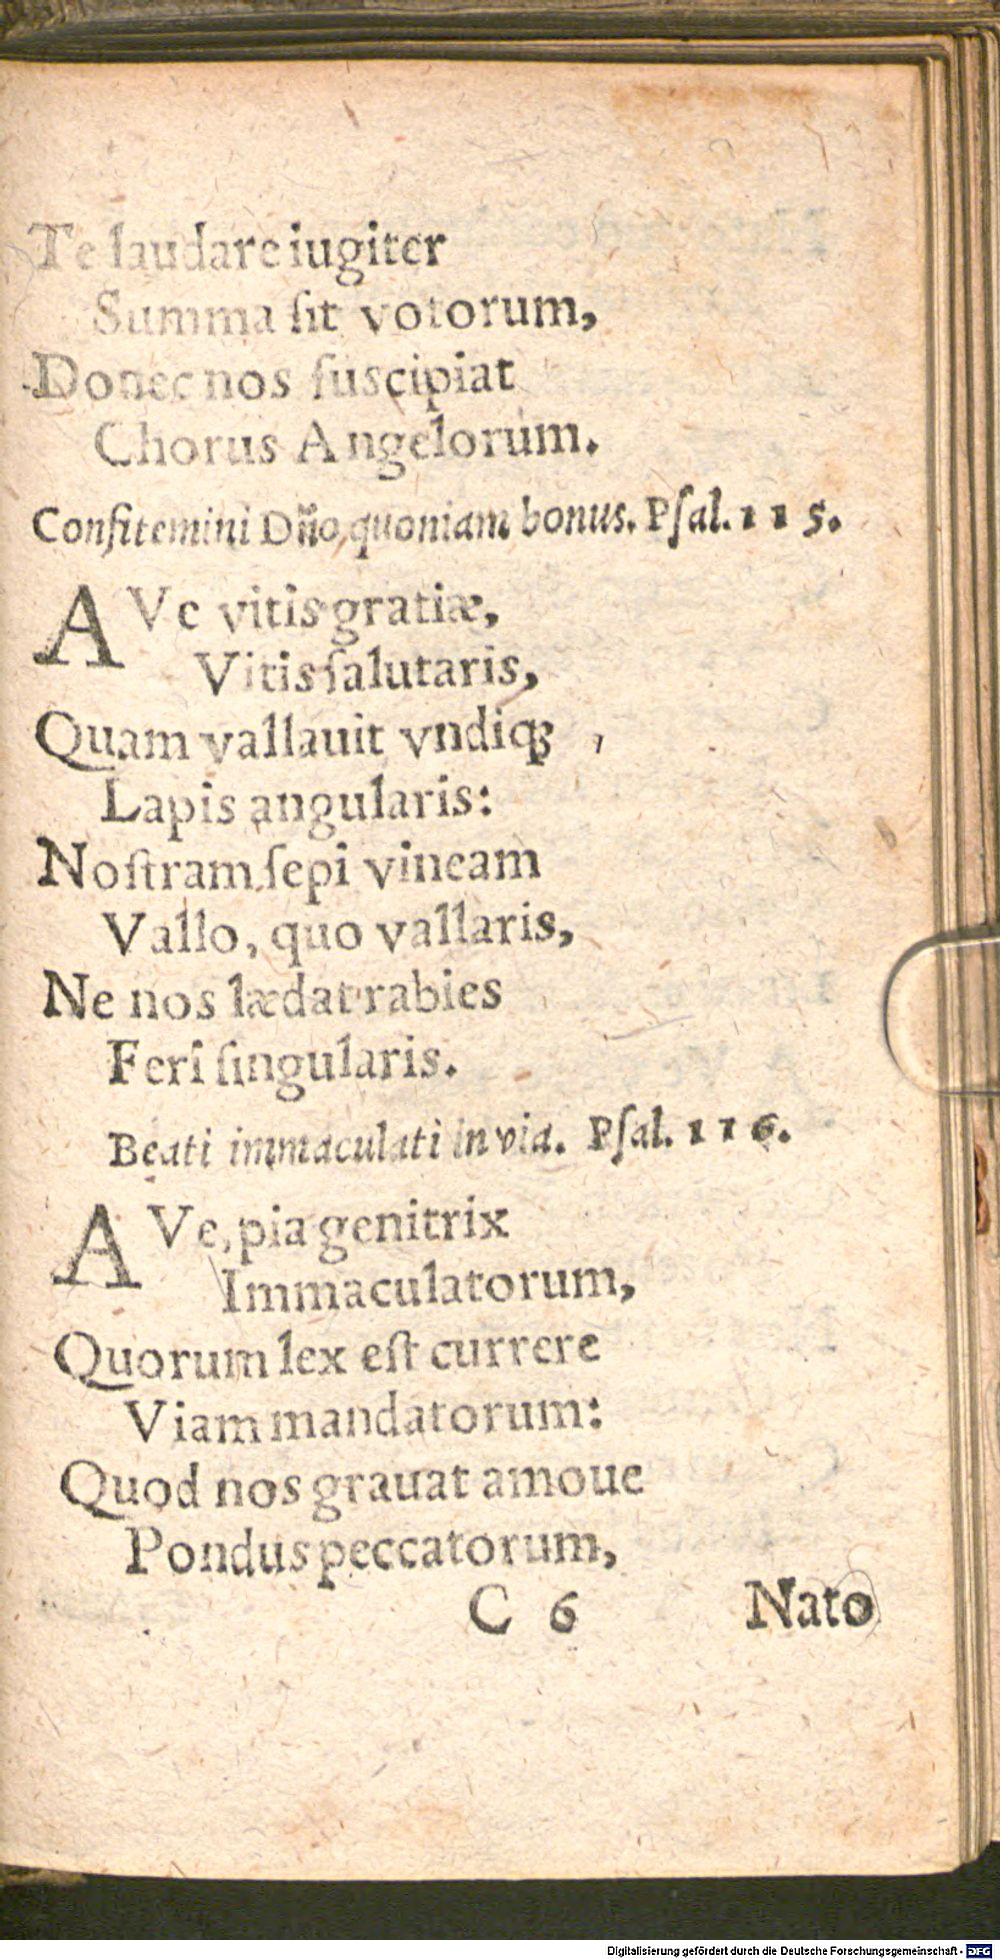 Te laudare iugiter
Summa ſit votorum,
Donec nos ſuscipiat
Chorus Angelorum.
Confitemini Dño, quoniam bonus. Pſal. 115.
AVe vitis gratiæ,
Vitis ſalutaris,
Quam vallauit vndiqꝫ
Lapis angularis:
Noſtram ſepi vineam
Vallo, quo vallaris,
Ne nos lædat rabies
Feri ſingularis.
Beati immaculati in via. Pſal. 116.
AVe, pia genitrix
Immaculatorum,
Quorum lex eſt currere
Viam mandatorum:
Quod nos grauat amoue
Pondus peccatorum,
C 6 Nato
Digitalisierung gefördert durch die Deutsche Forschungsgemeinschaft - DFG